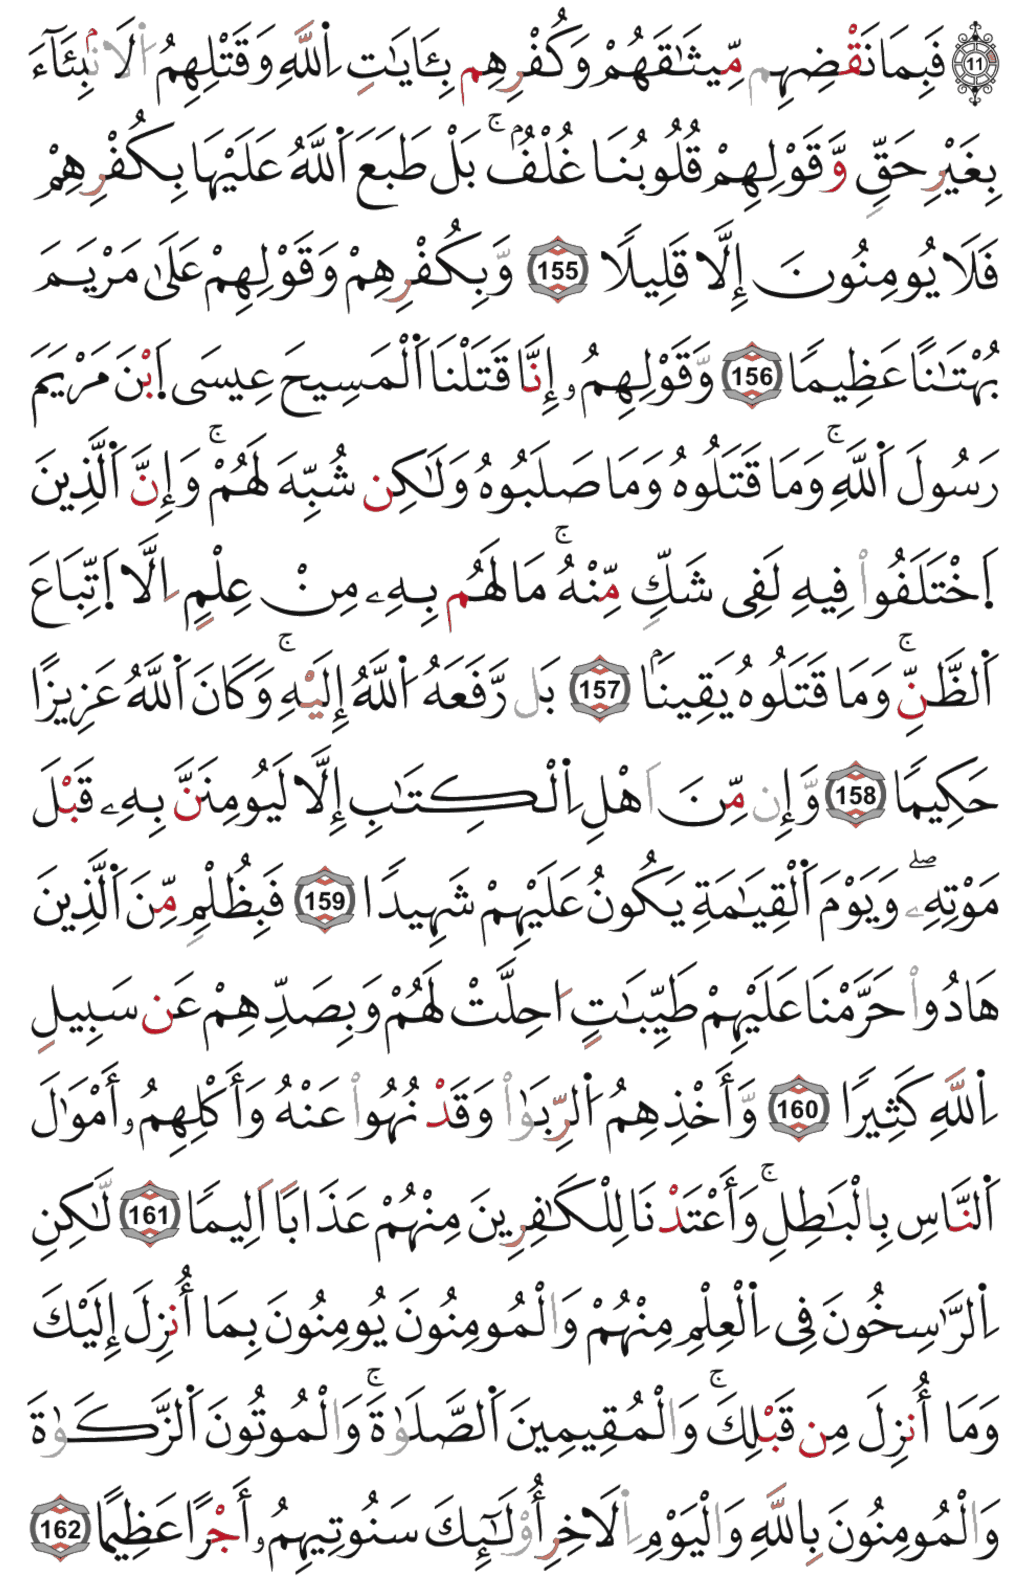 11 فَبِمَا نَقْضِهِم مِّيثَٰقَهُمْ وَكُفْرِهِم بِـَٔايَٰتِ اِ۬للَّهِ وَقَتْلِهِمُ اُ۬لَانۢبِئَآءَ
بِغَيْرِ حَقٍّ وَّقَوْلِهِمْ قُلُوبُنَا غُلْفُۢ ۚ بَلْ طَبَعَ اَ۬للَّهُ عَلَيْهَا بِكُفْرِهِمْ
فَلَا يُومِنُونَ إِلَّا قَلِيلًا 155 وَّبِكُفْرِهِمْ وَقَوْلِهِمْ عَلَىٰ مَرْيَمَ
بُهْتَٰنًا عَظِيمًا 156 وَّقَوْلِهِمُۥ إِنَّا قَتَلْنَا اَ۬لْمَسِيحَ عِيسَى اَ۪بْنَ مَرْيَمَ
رَسُولَ اَ۬للَّهِ ۚ وَمَا قَتَلُوهُ وَمَا صَلَبُوهُ وَلَٰكِن شُبِّهَ لَهُمْ ۚ وَإِنَّ اَ۬لَّذِينَ
اَ۪خْتَلَفُوا۟ فِيهِ لَفِى شَكٍّ مِّنْهُ ۚ مَا لَهُم بِهِۦ مِنْ عِلْمٍ اِلَّا اَ۪تِّبَاعَ
اَ۬لظَّنِّ ۚ وَمَا قَتَلُوهُ يَقِينَاۢ 157 بَل رَّفَعَهُ اُ۬للَّهُ إِلَيْهِ ۚ وَكَانَ اَ۬للَّهُ عَزِيزًا
حَكِيمًا 158 وَّإِن مِّنَ اَهْلِ اِ۬لْكِتَٰبِ إِلَّا لَيُومِنَنَّ بِهِۦ قَبْلَ
مَوْتِهِۦ ۖ وَيَوْمَ اَ۬لْقِيَٰمَةِ يَكُونُ عَلَيْهِمْ شَهِيدًا 159 فَبِظُلْمٍ مِّنَ اَ۬لَّذِينَ
هَادُوا۟ حَرَّمْنَا عَلَيْهِمْ طَيِّبَٰتٍ اُحِلَّتْ لَهُمْ وَبِصَدِّهِمْ عَن سَبِيلِ
اِ۬للَّهِ كَثِيرًا 160 وَّأَخْذِهِمُ اُ۬لرِّبَوٰا۟ وَقَدْ نُهُوا۟ عَنْهُ وَأَكْلِهِمُۥ أَمْوَٰلَ
اَ۬لنَّاسِ بِالْبَٰطِلِ ۚ وَأَعْتَدْنَا لِلْكَٰفِرِينَ مِنْهُمْ عَذَابًا اَلِيمًا 161 لَّٰكِنِ
اِ۬لرَّٰسِخُونَ فِى اِ۬لْعِلْمِ مِنْهُمْ وَالْمُومِنُونَ يُومِنُونَ بِمَا أُنزِلَ إِلَيْكَ
وَمَا أُنزِلَ مِن قَبْلِكَ ۚ وَالْمُقِيمِينَ اَ۬لصَّلَوٰةَ ۚ وَالْمُوتُونَ اَ۬لزَّكَوٰةَ
وَالْمُومِنُونَ بِاللَّهِ وَالْيَوْمِ اِ۬لَاخِرِ أُو۟لَٰٓئِكَ سَنُوتِيهِمُۥ أَجْرًا عَظِيمًا 162